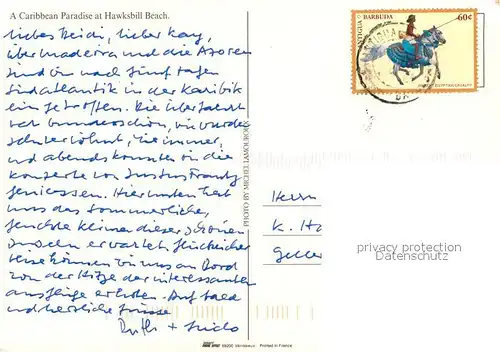 A Caribbean Paradise at Hawksbill Beach.
Liebes Heidi, lieber Kay,
über Madeira und die Azoren
sind wir nach fünf Tagen
Südatlantik in der Karibik
eingetroffen. Die Überfahrt
war wunderschön, wir wurden
sehr verwöhnt, wie immer,
und abends konnten wir die
Konzerte von Justus Frantz
geniessen. Hier unten hat
uns das sommerliche,
feuchte Klima dieser schönen
Inseln erwartet. Glücklicher
weise können wir uns an Bord
von der Hitze der interessanten
Ausflüge erholen. Auf bald
und herzliche Grüsse
Ruth +
PHOTO BY MICHEL
ANTIGUA
BARBUDA
60¢
Herrn
K.
privacy protection
Datenschutz
Printed in France